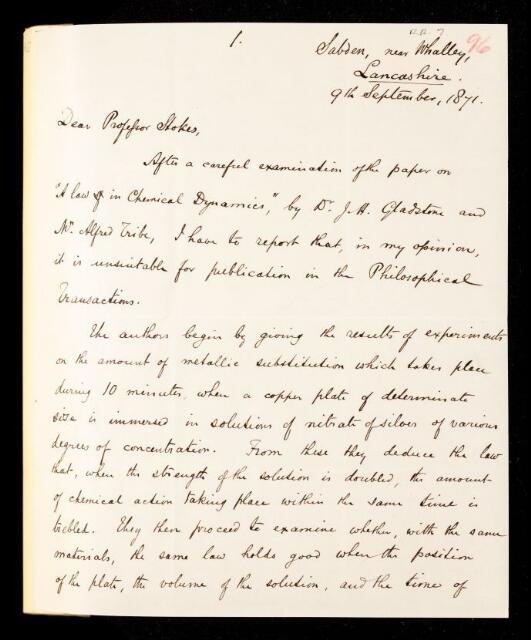 RR. 7
96
1.
Sabden, near Whalley,
Lancashire.
9th September, 1871.
Dear Professor Stokes,
After a careful examination of the paper on
"A law in Chemical Dynamics," by Dr. J. H. Gladstone and
Mr. Alfred Tribe, I have to report that, in my opinion,
it is unsuitable for publication in the Philosophical
Transactions.
The authors begin by giving the results of experiments
on the amount of metallic substitution which takes place
during 10 minutes, when a copper plate of determinate
size is immersed in solutions of nitrate of silver of various
degrees of concentration. From these they deduce the law
that, when the strength of the solution is doubled, the amount
of chemical action taking place within the same time is
trebled. They then proceed to examine whether, with the same
materials, the same law holds good when the position
of the plate, the volume of the solution, and the time of